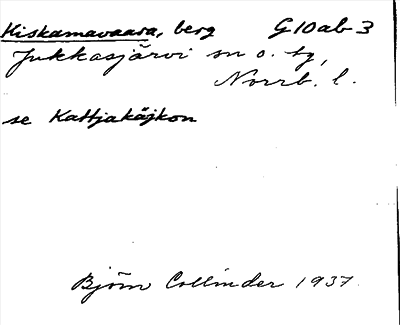 Kiskamavaara, berg G10ab-3
Jukkasjärvi sn o. tg,
Norrb. l.
se Kattjakåjkon
Björn Collinder 1937.